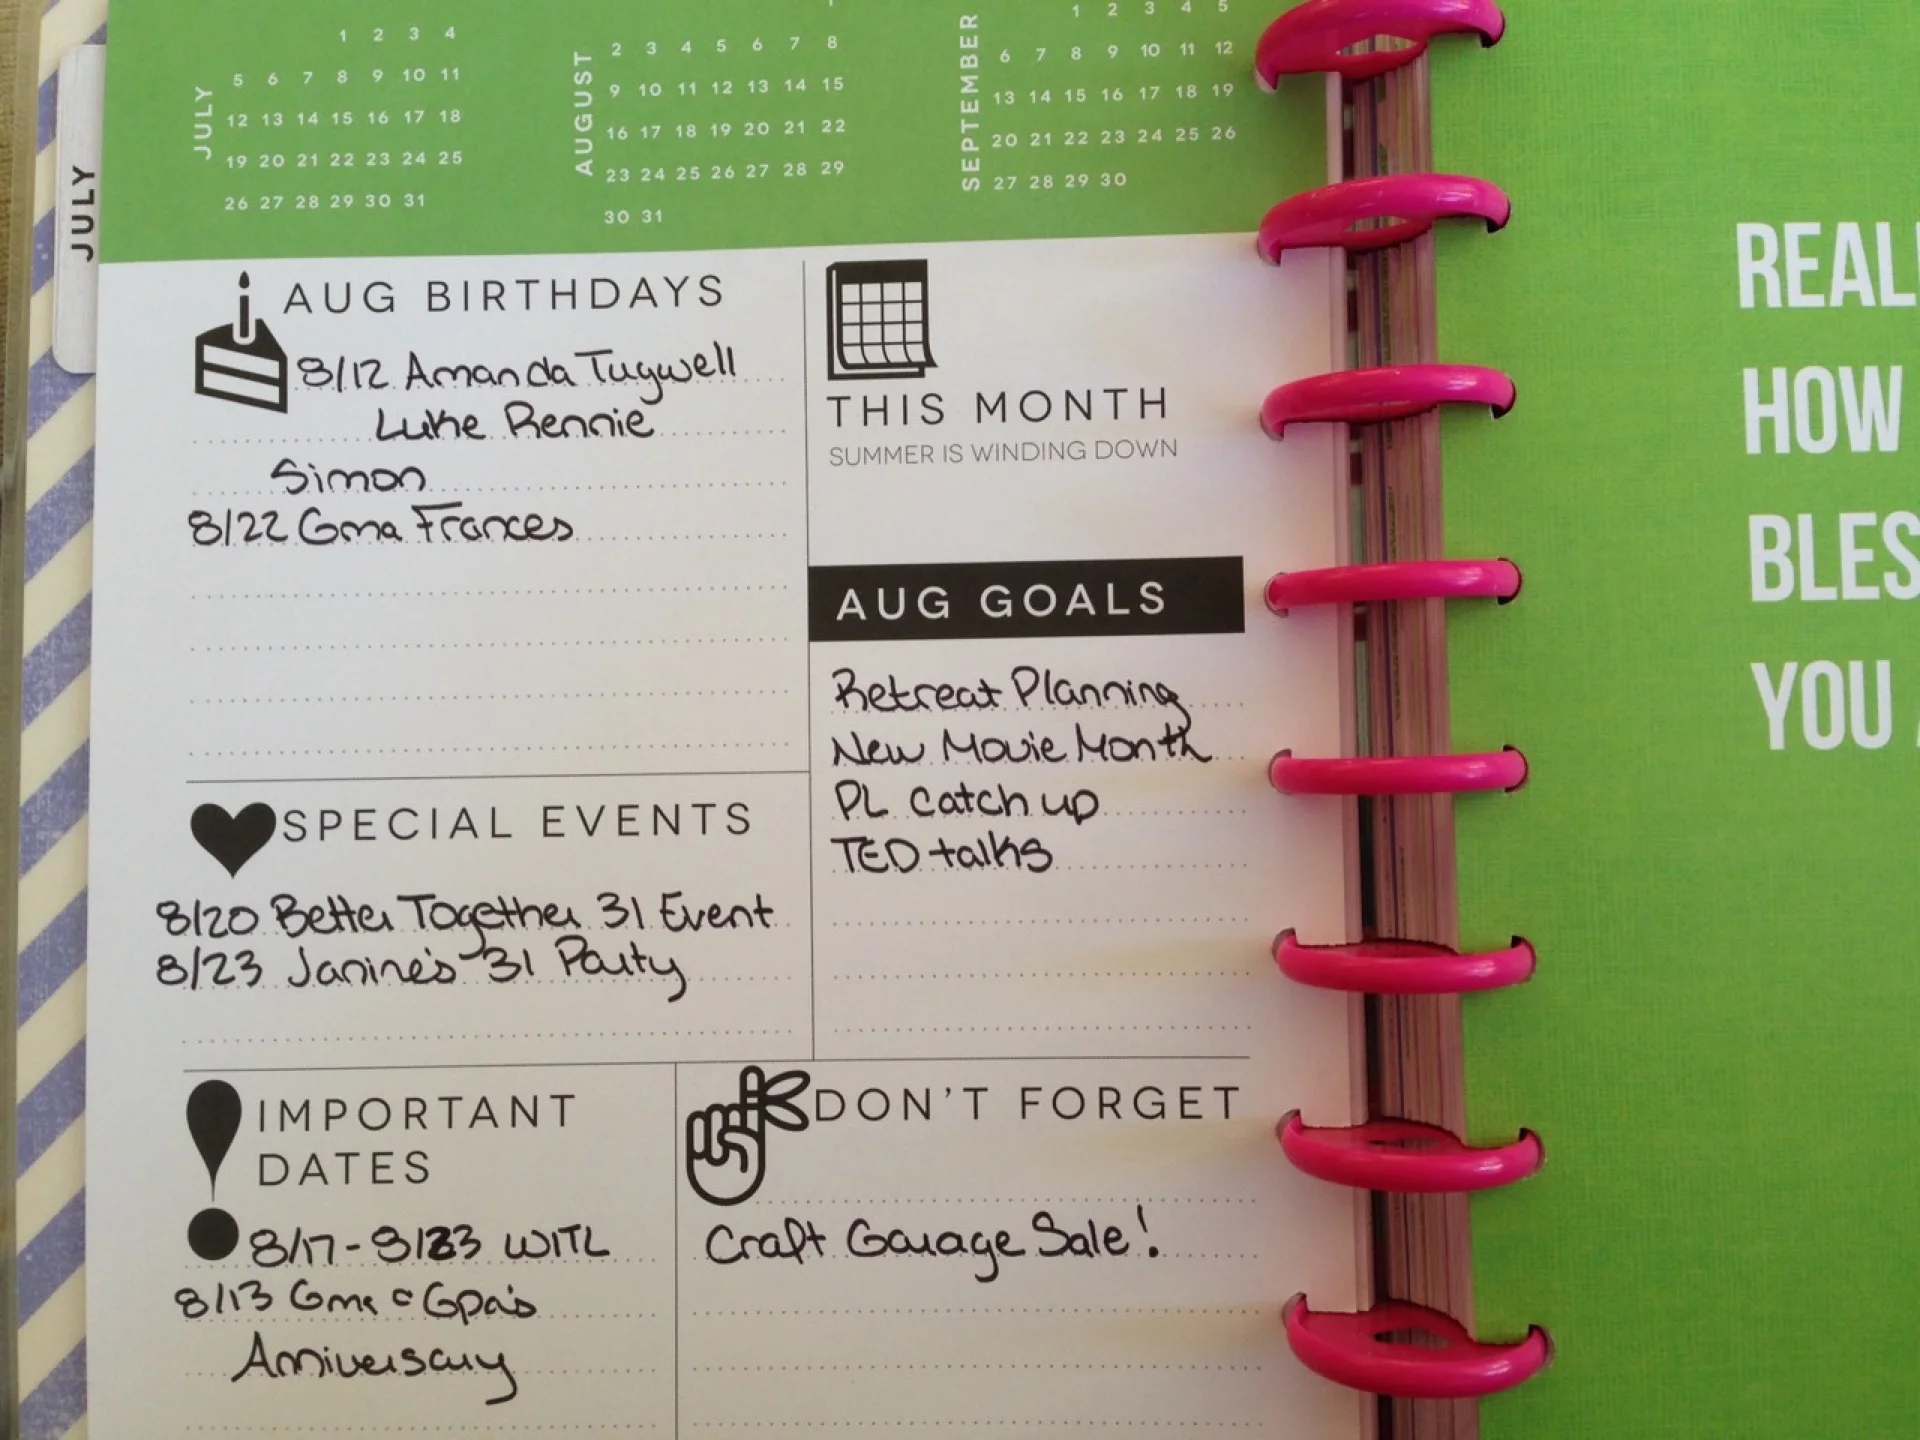 JULY
1 2 3 4
5 6 7 8 9 10 11
12 13 14 15 16 17 18
19 20 21 22 23 24 25
26 27 28 29 30 31
AUGUST
1
2 3 4 5 6 7 8
9 10 11 12 13 14 15
16 17 18 19 20 21 22
23 24 25 26 27 28 29
30 31
SEPTEMBER
1 2 3 4 5
6 7 8 9 10 11 12
13 14 15 16 17 18 19
20 21 22 23 24 25 26
27 28 29 30
JULY
AUG BIRTHDAYS
8/12 Amanda Tugwell
Luke Rennie
Simon
8/22 Gma Frances
THIS MONTH
SUMMER IS WINDING DOWN
AUG GOALS
Retreat Planning
New Movie Month
PL Catch up
TED talks
SPECIAL EVENTS
8/20 Better Together 31 Event
8/23 Janine's 31 Party
IMPORTANT
DATES
8/17 - 8/23 WITL
8/13 Gma & Gpa's
Anniversary
DON'T FORGET
Craft Garage Sale!
REAL
HOW
BLES
YOU